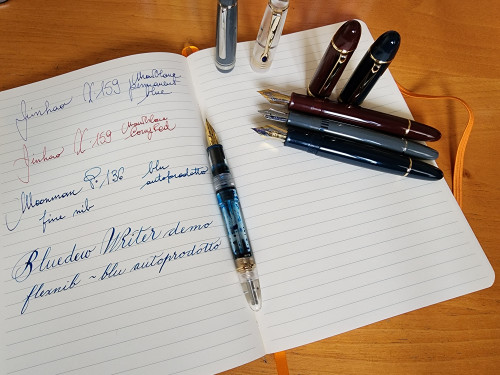 Jinhao X 159 Montblanc
permanent
blue
Jinhao X 159 Montblanc
Red
Moonman P. 136 blu
autoprodotto
fine nib
Bluedew Writer demo
flexnib ~ blu autoprodotto